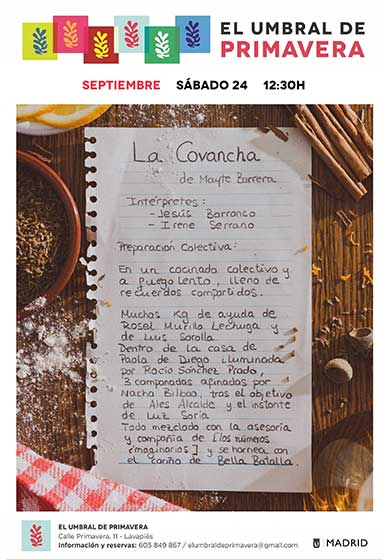 EL UMBRAL DE
PRIMAVERA
SEPTIEMBRE SÁBADO 24 12:30H
La Covancha
de Mayte Barrera
Intérpretes:
- Jesús Barranco
- Irene Serrano
Preparación Colectiva:
En un cocinado colectivo y
a fuego lento, lleno de
recuerdos compartidos.
Muchos Kg de ayuda de
Rosel Murillo Lechuga y
de Luis Sorolla
Dentro de la casa de
Paola de Diego iluminada
por Rocío Sánchez Prado,
3 companadas afinadas por
Nacho Bilbao, tras el objetivo
de Ales Alcalde y el instante
de Luz Soria
Todo mezclado con la asesoría
y compañía de [los números
imaginarios] y se hornea con
el cariño de Bella Batalla.
EL UMBRAL DE PRIMAVERA
Calle Primavera, 11 - Lavapiés
Información y reservas: 605 849 867 / elumbraldeprimavera@gmail.com
MADRID